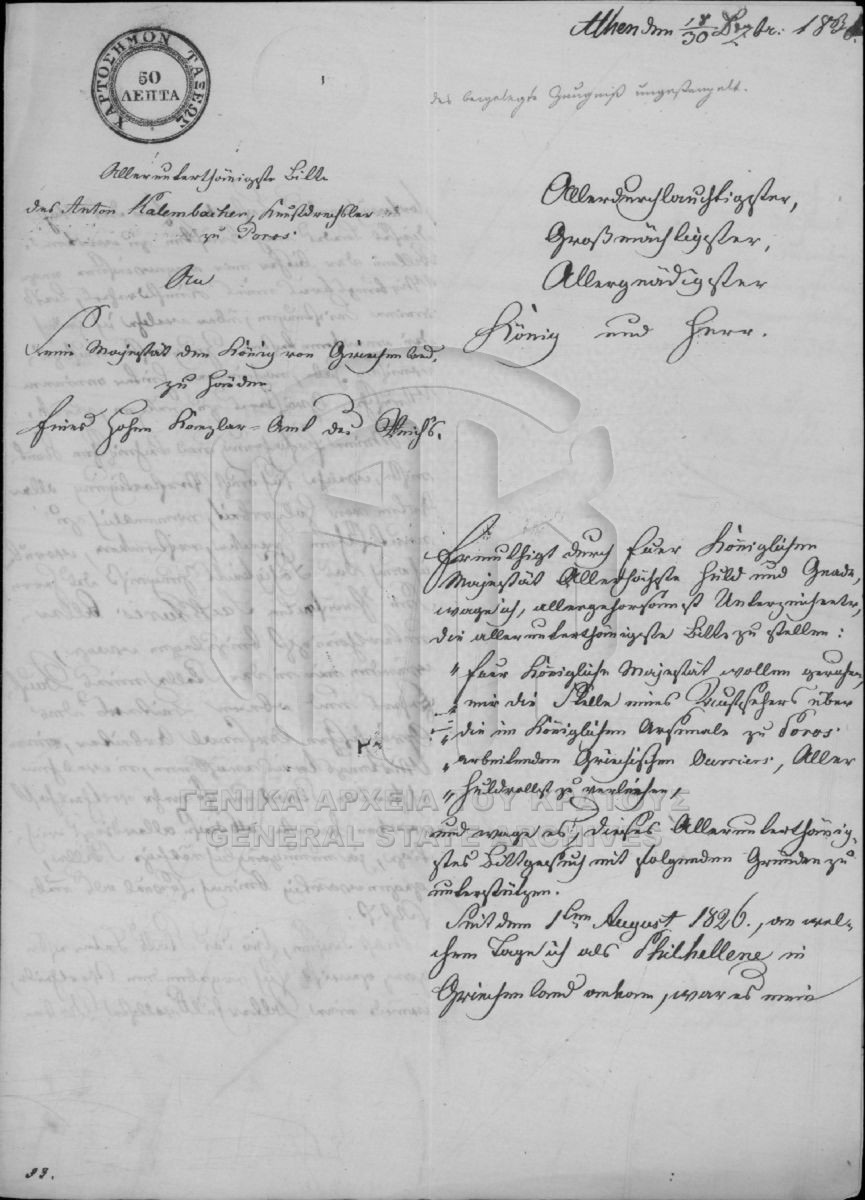 Athen den 18/30 Dezbr: 183
des beigelegte Zeugniß ungestempelt.
ΧΑΡΤΟΣΗΜΟΝ ΤΑΞΕΩΣ
50
ΛΕΠΤΑ
Allerunterthänigste Bitte
des Anton Kalembacher, Kunstdrechsler
zu Poros
An
Seine Majestät den König von Griechenland.
zu Händen
Eines Hohen Kanzlar-Amt des Reichs.
Allerdurchlauchtigster,
Großmächtigster,
Allergnädigster
König und Herr.
Ermuthigt durch Euer Königlichen
Majestät Allerhöchste Huld und Gnade,
wage ich, allergehorsamst Unterzeichneter,
die allerunterthänigste Bitte zu stellen:
" Euer Königliche Majestät wollen geruhen,
" mir die Stelle eines Aufsehers über
" die im Königlichen Arsenale zu Poros
" arbeitenden Griechischen, Aller
" Huldvollst zu verleihen,
und wage es, dieses Allerunterthänig-
stes Bittgesuch mit folgenden Gründen zu
unterstützen.
Seit dem 1ten August 1826., an wel-
chem Tage ich als Philhellene in
Griechenland ankam, war es mein
ΓΕΝΙΚΑ ΑΡΧΕΙΑ ΤΟΥ ΚΡΑΤΟΥΣ
GENERAL STATE ARCHIVES
93.